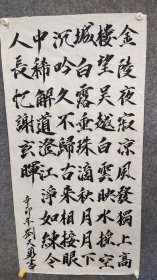 金陵夜寂凉風發獨上高
樓望吳越白雲映水摇空
城白露垂珠滴秋月月下
沉吟久不歸古來相接眼
中稀解道澄江淨如練令
人長憶謝玄暉
辛卯年劉